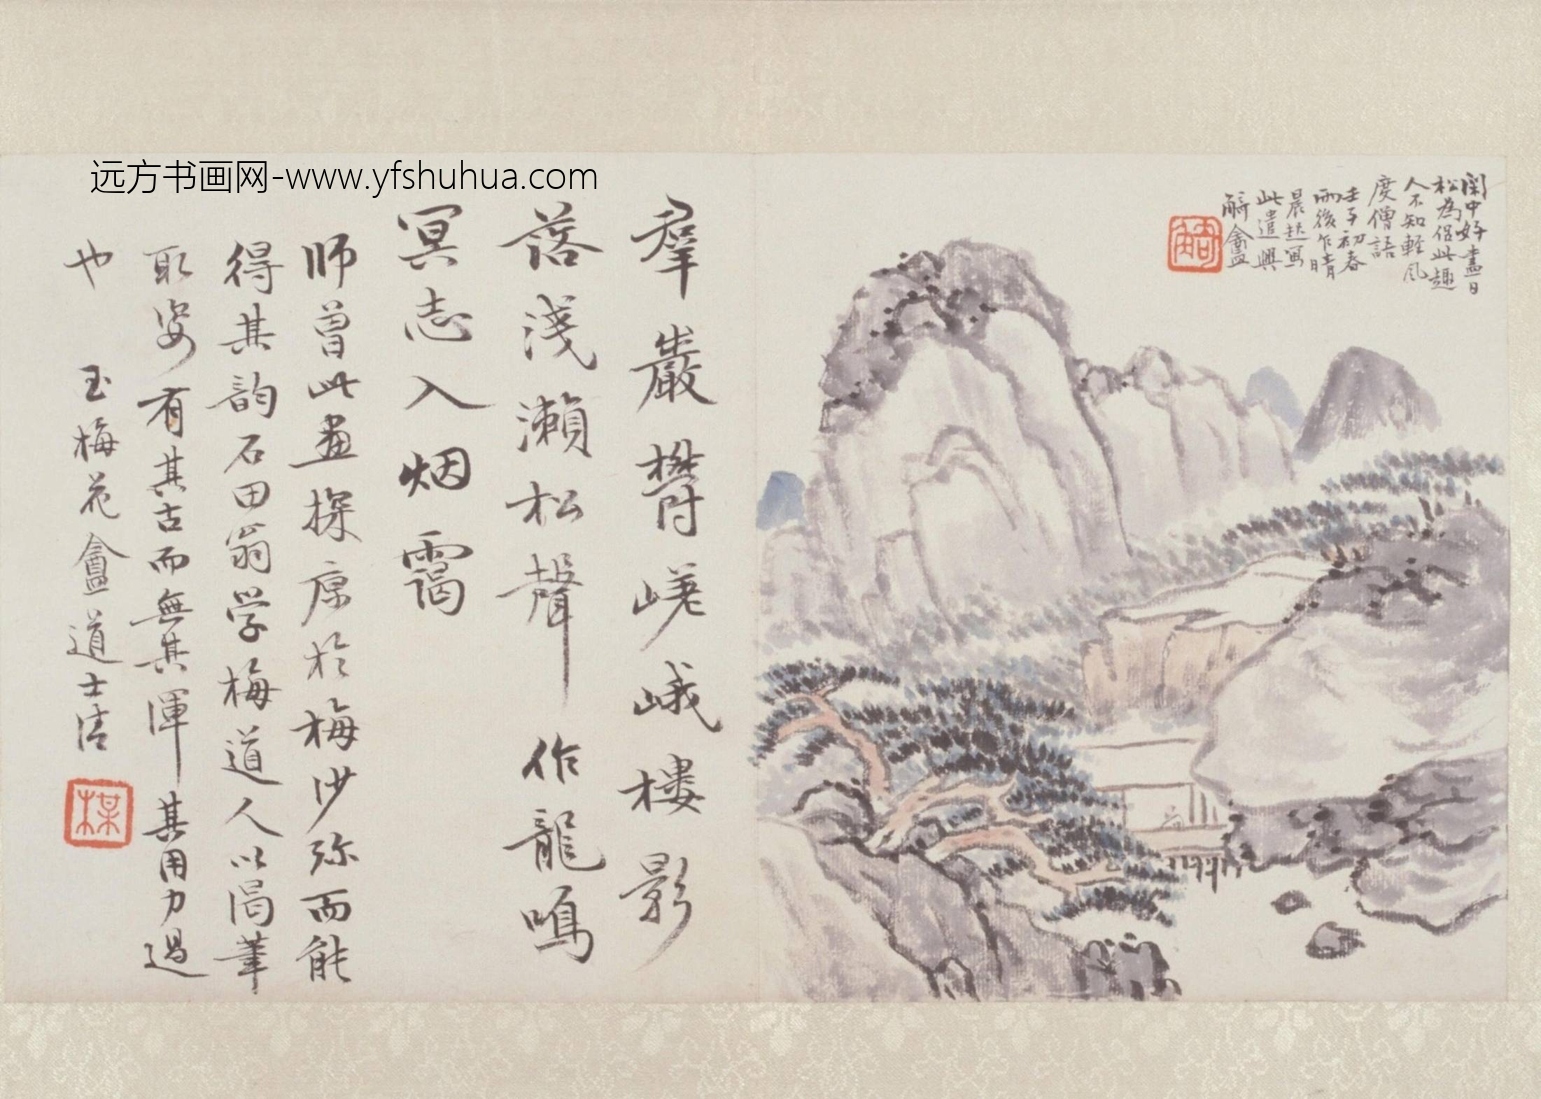 远方书画网-www.yfshuhua.com
闲中好盡日
松為侶此趣
人不知輕風
度僧語
壬子初春
雨後乍晴
晨起寫
此遣興
羣巖欝嵯峨樓影
落淺瀨松聲作龍鳴
冥志入烟靄
师曾此畫探原於梅沙弥而能
得其韵石田翁学梅道人以渴筆
取姿有其古而無其渾其用力過
也 玉梅花盦道士清